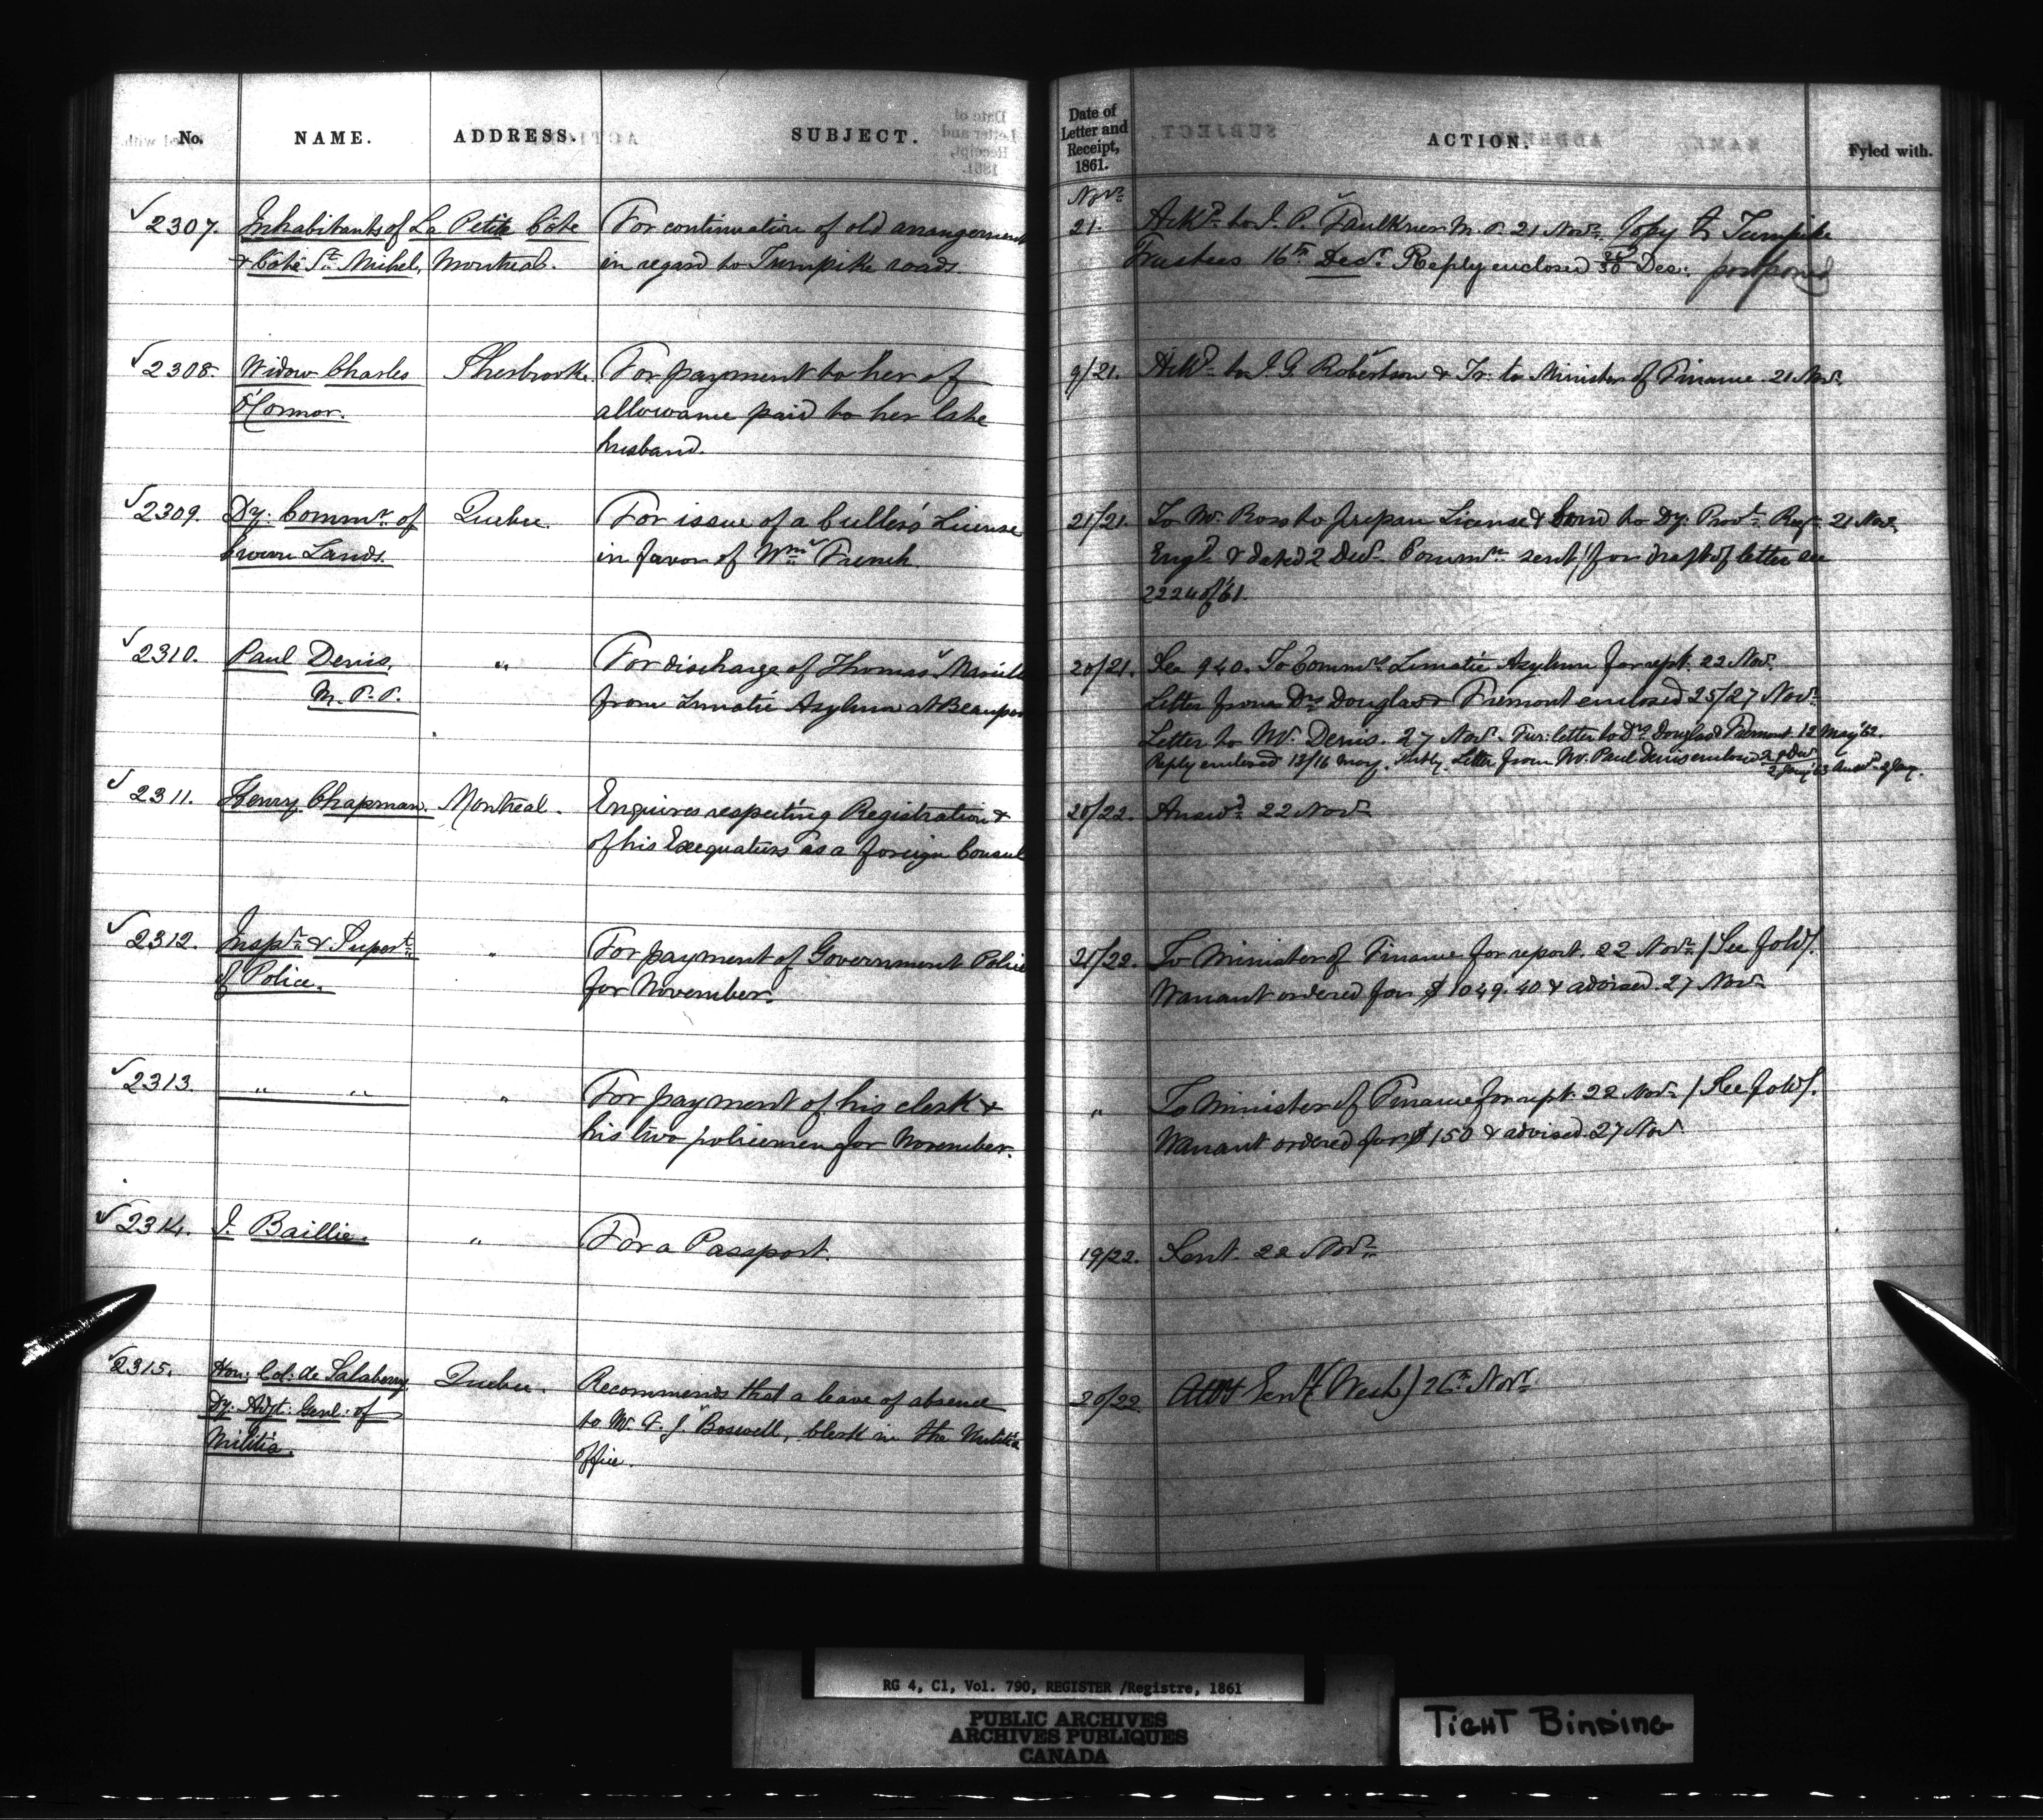 No. NAME. ADDRESS. SUBJECT. Date of Letter and Receipt, 1861. ACTION. Fyled with.
Novr
2307. Inhabitants of La Petite Côte For continuation of old arrangement 21. Ackd to J. P. Falkner M. P. 21 Novr. Copy to Turnpike
& Côte St. Michel, Montreal. in regard to Turnpike roads. Trustees 16th Decr. Reply enclosed 30 Dec: postponed
2308. Widow Charles Sherbrooke. For payment to her of 9/21. Ackd to J. G. Robertson & Tr: to Minister of Finance. 21 Novr.
O'Connor. allowance paid to her late
husband.
2309. Dy: Commr of Quebec. For issue of a culler's License 21/21. To Mr. Ross to prepare License & bond to Dy: Provl Reg 21 Novr
Crown Lands. in favor of Wm French. Engd & dated 2 Decr Commn sent, for draft of letter see
2224 of/61.
2310. Paul Denis, " For discharge of Thomas from Lunatic Asylum at Beauport 20/21. See 940. To Commrs Lunatic Asylum for rept. 22 Novr.
M.P.P. Letter from Drs Douglas & Fremont enclosed 25/27 Novr
Letter to Mr. Denis. 27 Novr. Fur: letter to Drs Douglas & Fremont. 12 May '62.
Reply enclosed 13/16 May. Letter from Mr. Paul Denis enclosed
2311. Henry Chapman. Montreal. Enquires respecting Registration & 20/22. Answd 22 Novr
of his Exequaturs as a foreign Consul
2312. Inspr & Supert " For payment of Government Police 21/22. To Minister of Finance for report. 22 Novr /See fold/.
of Police. for November. Warrant ordered for $1049.40 & advised. 27 Novr
2313. " " " For payment of his clerk & " To Minister of Finance for rept. 22 Novr /See fold/.
his two policemen for November. Warrant ordered for $150 & advised. 27 Nov
2314. J. Baillie. " For a Passport. 19/22. Sent. 22 Novr
2315. Hon: Col: de Salaberry Quebec. Recommends that a leave of absence 20/22 (West) 26th Novr
Dy: Adjt: Genl: of to Mr. F. J. Boswell, clerk in the Militia
Militia. office.
RG 4, C1, Vol. 790, REGISTER /Registre, 1861
PUBLIC ARCHIVES
ARCHIVES PUBLIQUES
CANADA
TIGHT BINDING